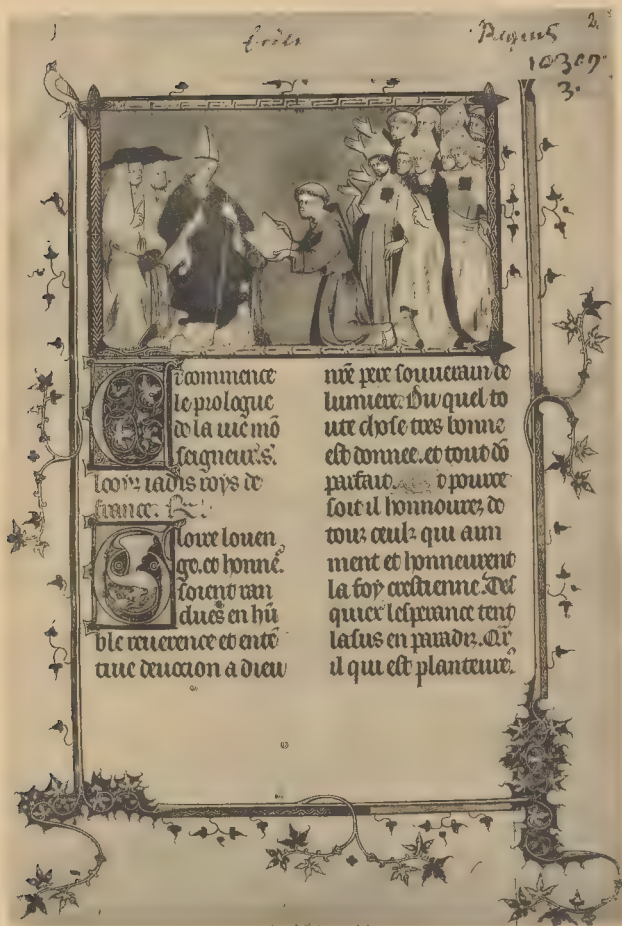 1
2.
Regius
3.
Ci commence
le prologue
de la uie mõ
seigneur. s.
looys iadis roys de
france.
Gloire louen
ge. et honne᷒.
soient ran
dues en hũ
ble reuerence et entẽ
tiue deuocion a dieu
nr̃e pere souuerain de
lumiere. Du quel to
ute chose tres bonne
est donnee. et tout dõ
parfait. pource
soit il honnourez de
touz ceulz qui aim
ment et honneurent
la foy crestienne. Des
quiex lesperance tent
lasus en paradiz. Car
il qui est planteure᷒.